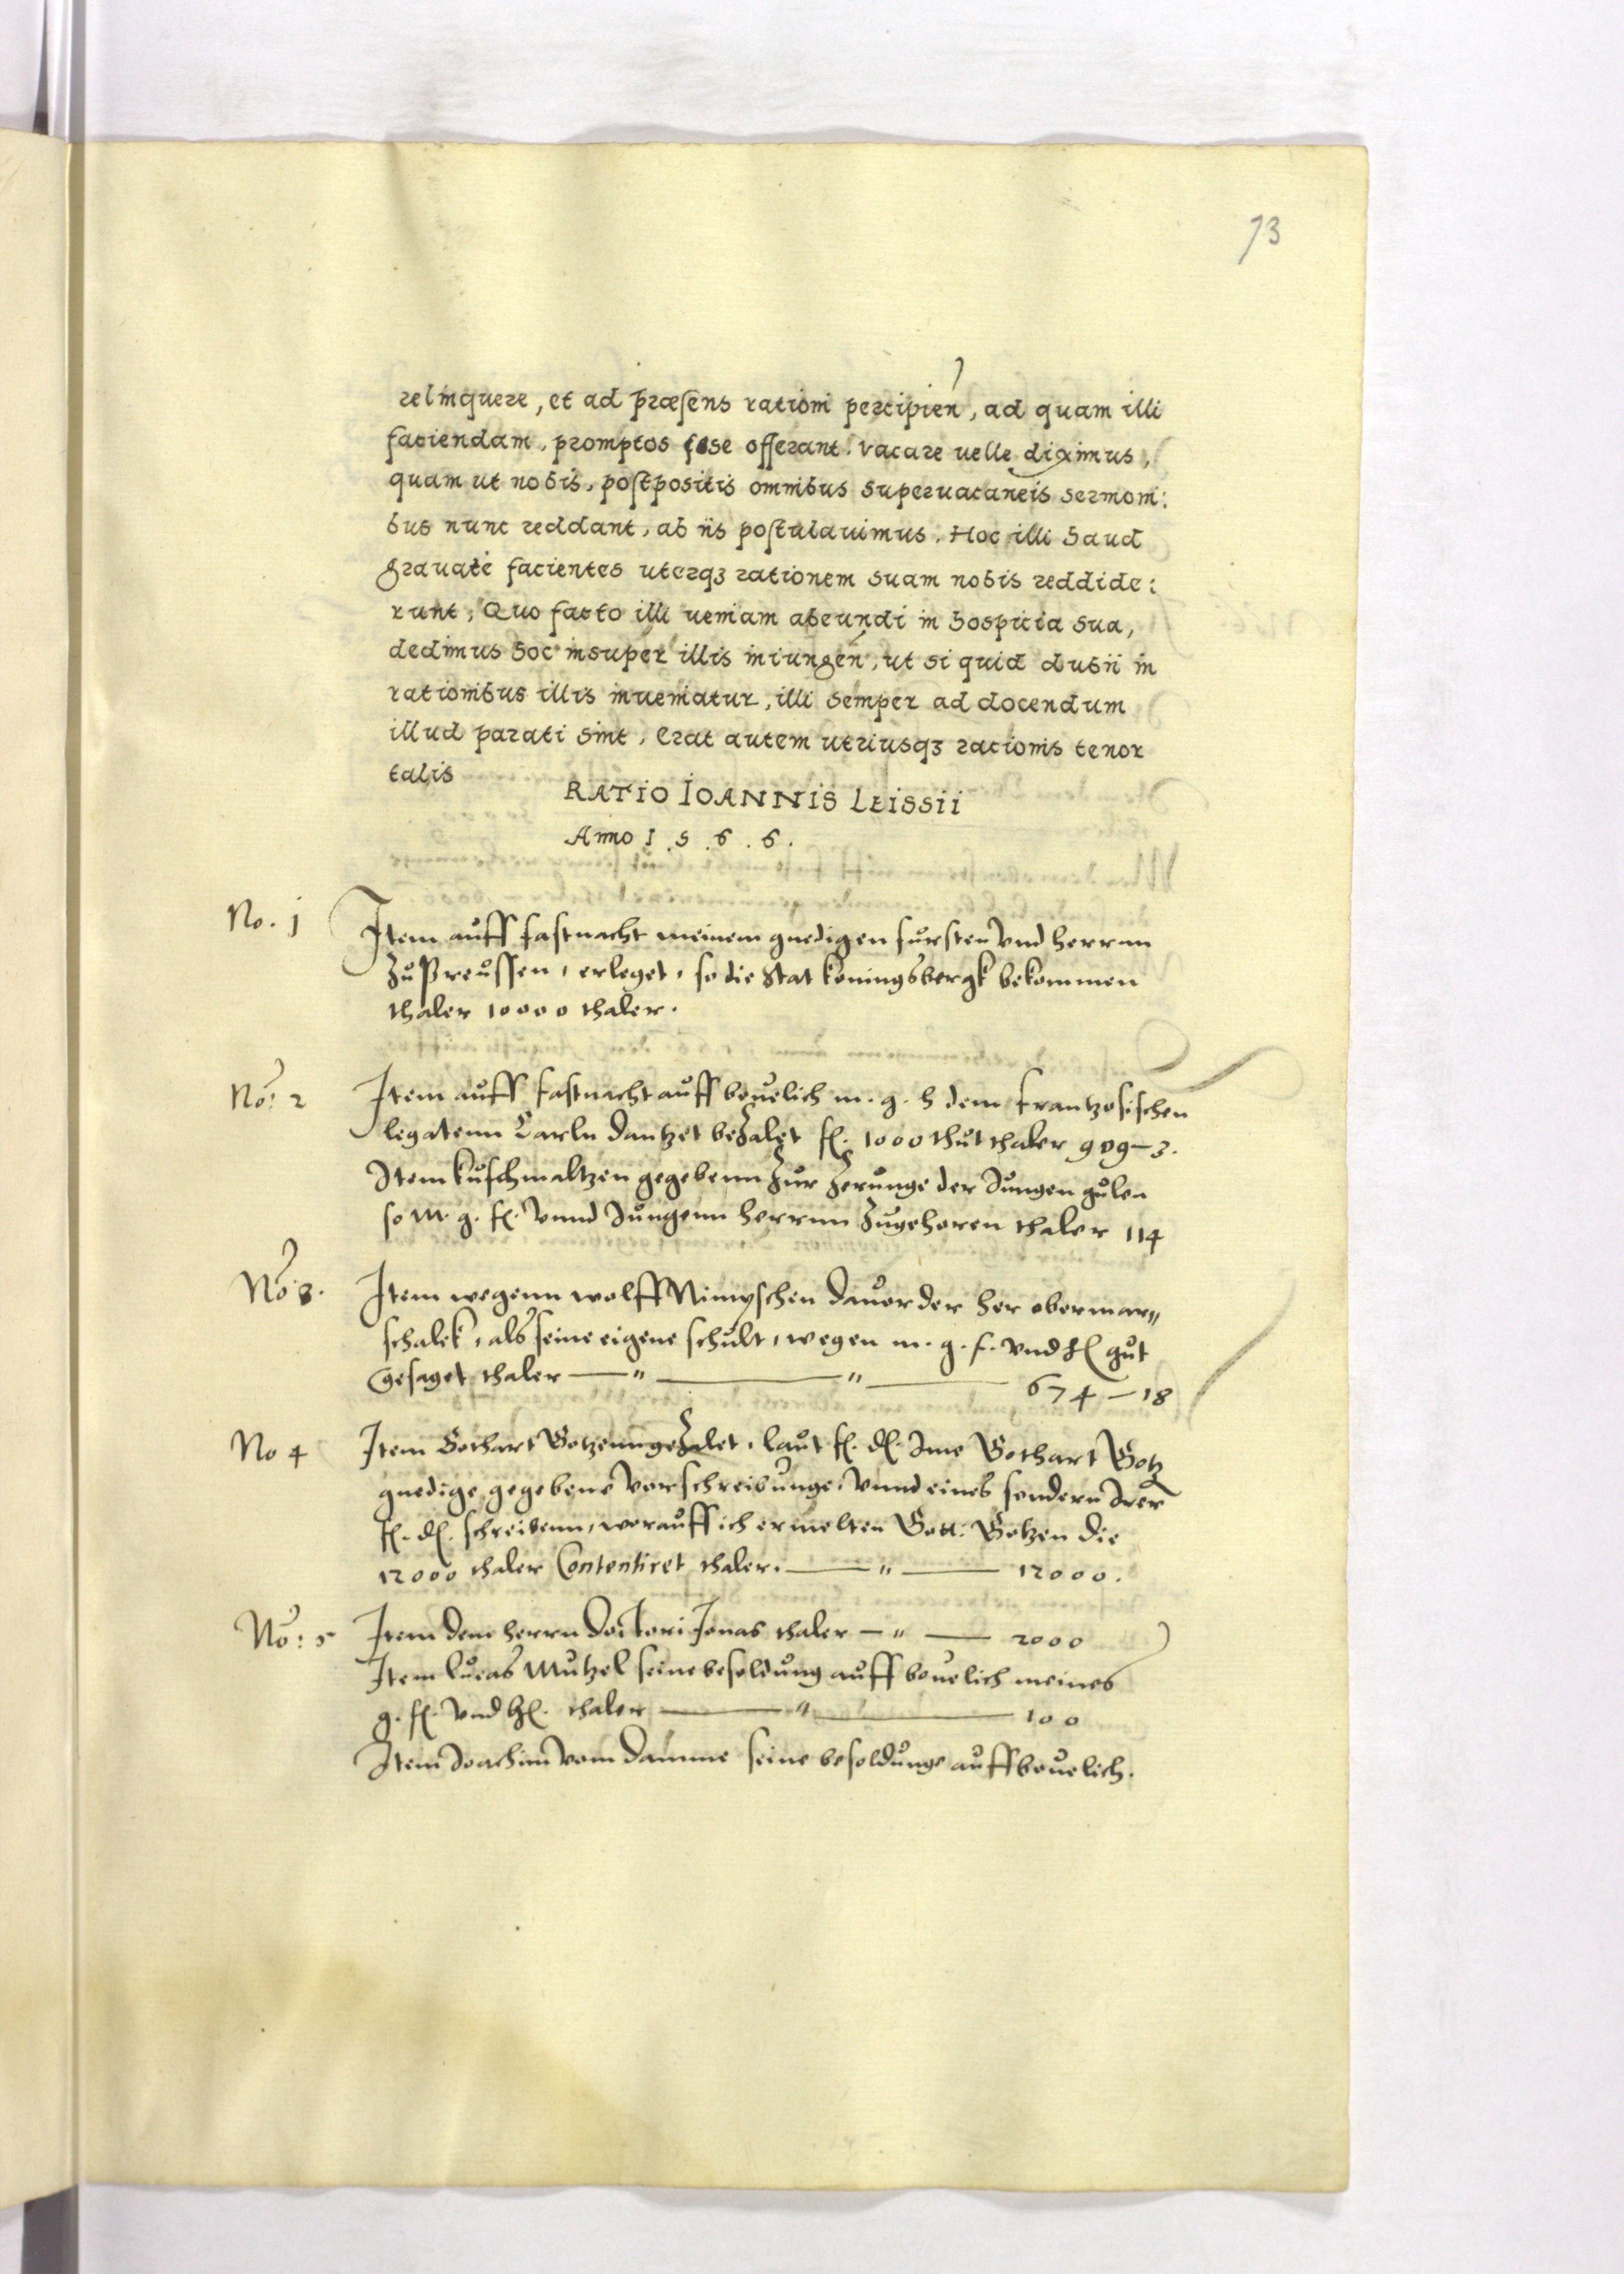 73
relinquere, et ad præsens rationi percipien, ad quam illi
faciendam, promptos sese offerant. vacare uelle diximus,
quam ut nobis, postpositis omnibus superuacaneis sermoni:
bus nunc reddant, ab iis postulauimus. Hoc illi haud
grauate facientes uterqꝫ rationem suam nobis reddide:
runt, Quo facto illi ueniam abeundi in hospicia sua,
dedimus hoc insuper illis iniungen, ut si quid dubii in
rationibus illis inueniatur, illi semper ad docendum
illud parati sint, Erat autem utriusqꝫ racionis tenor
talis
RATIO IOANNIS LEISSII
Anno 1.5.6.6.
No. 1 Item auff fastnacht meinem gnedigen fursten vnd herrnn
zu Preussen, erleget, so die Stat koningsbergk bekommen
thaler 10000 thaler.
No: 2 Item auff fastnacht auff beuelich m. g. h dem frantzosischen
legatenn Carln dantzet bezalet fl. 1000 thut thaler 909 – 3.
Item kuschmaltzen gegebenn zur zerunge der Jungen gulen
so m. g. f. vnnd Jungenn herrnn zugehoren thaler 114
No 3. Item wegenn wolff Nimyschen dauor der her obermar„
schalck, als seine eigene schult, wegen m. g. f. vnd h gut
gesaget thaler — " — " — 674 – 18
No 4 Item Gothart Gotzenn gezalet, laut f. d. Ime Gothart Gotz
gnedige gegebene vorschreibunge, vnnd eines sondern Irer
f. d. schreibenn, worauff ich ermelten Gott: Gotzen die
12000 thaler Contentiret thaler. — " — 12000.
No: 5 Item dem herrn Doctori Jonas thaler — " — 2000
Item lucas Mutzel seine besoldung auff beuelich meines
g. f. vnd h. thaler — " — 100
Item Joachim vom Damme seine besoldunge auff beuelich.